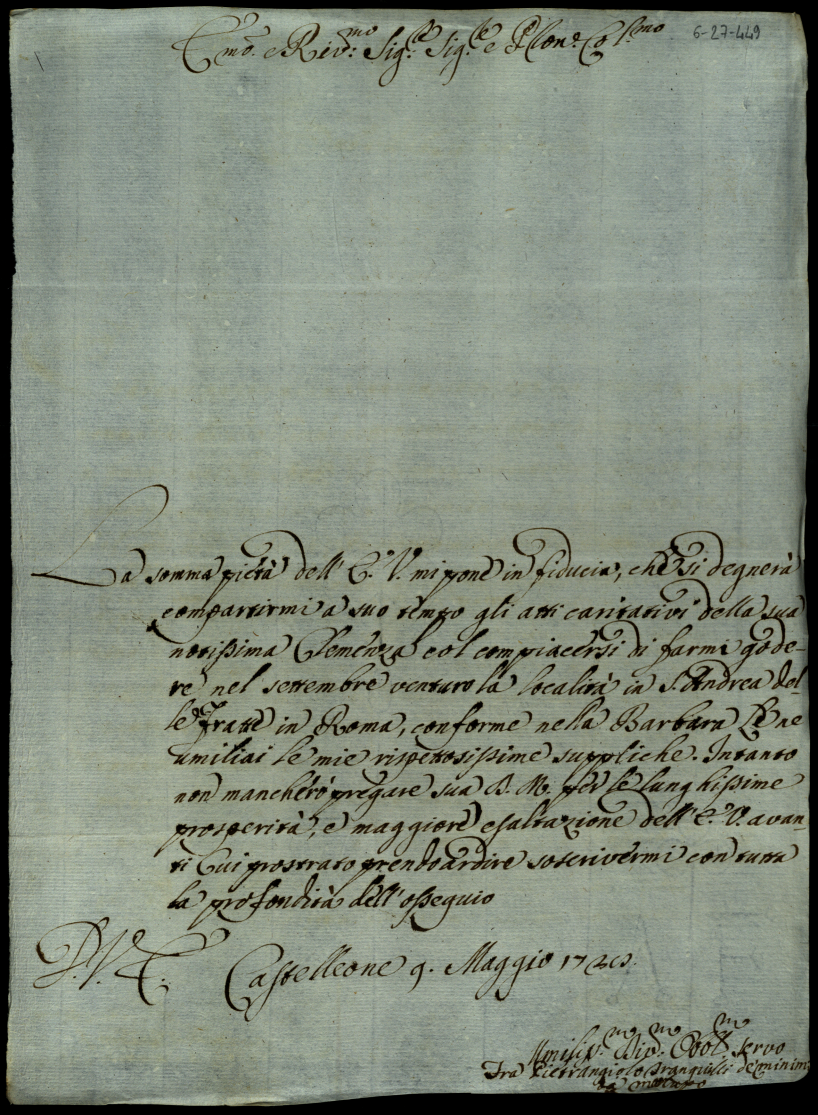 Emo. e Revmo: Sigre. Sigre. e Pron. Colmo
6-27-449
La somma pietà dell' E. V. mi pone in fiducia, che si degnerà
compartirmi a suo tempo gli atti caritativi della sua
notissima Clemenza col compiacersi di farmi gode-
re nel settembre venturo la località in S. Andrea del-
le Fratte in Roma, conforme nella Barbara Le ne
umiliai le mie rispettosissime suppliche. Intanto
non mancherò pregare sua D. M. per le lunghissime
prosperità, e maggiore esaltazione dell' E. V. avan-
ti Cui prostrato prendo ardire soscrivermi con tutta
la profondità dell' ossequio
D. V. E.
Castelleone 9. Maggio
Umiliss.mo Div.mo Obbl.mo servo
Fra Pietrangiolo Tranquilli de Minimi
da